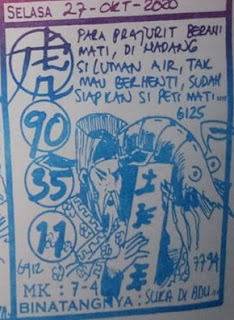 SELASA 27-OKT-2020
虎
PARA PRAJURIT BERANI
MATI, DI HADANG
SILUMAN AIR, TAK
MAU BERHENTI, SUDAH
SIAPKAN SI PETI MATI....
6125
90
35
11
6912
7794
MK : 7-4
BINATANGNYA : SUKA DI ADU....